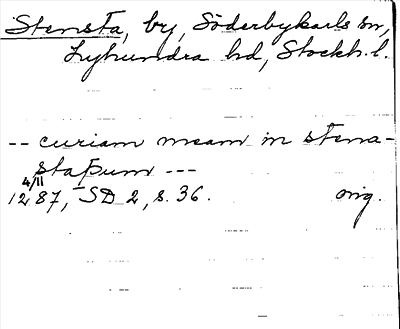 Stensta, by, Söderbykarls sn,
Lyhundra hd, Stockh. l.
-- curiam meam in stena-
staþum ---
4/11
1287, SD 2, s. 36. orig.